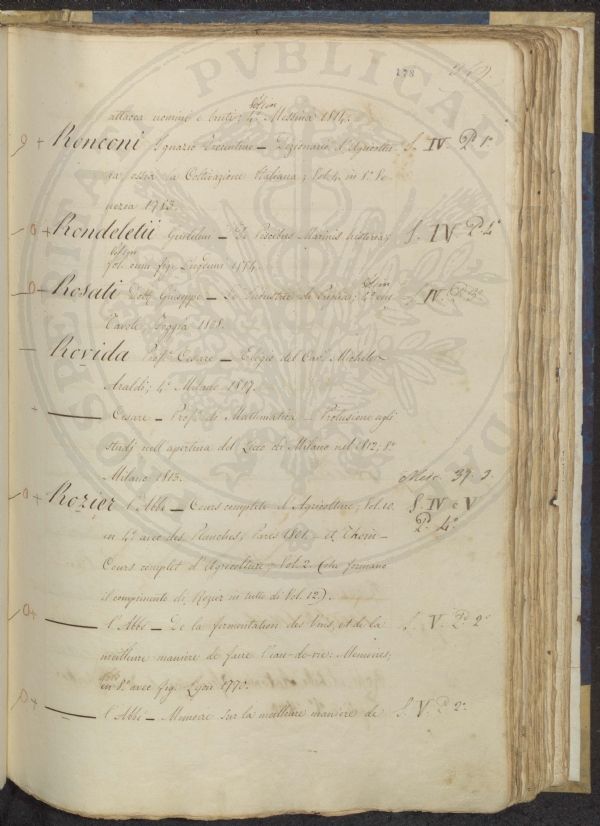 178
attacca uomini e bruti; 4º Messina 1814.
Ronconi Ignazio Fiorentino — Dizionario d'Agricoltu S. IV. P. 1ª
ra ossia la Coltivazione Italiana; Vol. 4. in 8º Ve
nezia 1783.
Rondeletii Gulielmi — De Piscibus Marinis historia; S. IV P. 4ª
fol. cum fig. Lugduni 1554.
Rosati Dott. Giuseppe — Le Industrie di Puglia; 4º con S. IV.
Tavole, Foggia 1808.
Rovida Profr. Cesare — Elogio del Cavr. Michele
Araldi; 4º Milano 1817.
— Cesare — Profr. di Mathematica — Prolusione agli
studj nell'apertura del Liceo di Milano nel 1812; 8º
Milano 1813. Misc. 39. 3.
Rozier l'Abbé — Cours complete d'Agriculture; Vol. 10. S. IV e V
in 4º avec des Planches; Paris 1801. — et Thoin — P. 4ª
Cours complet d'Agriculture; Vol. 2. (che formano
il compimento di Rozier in tutto di Vol. 12).
— l'Abbé — De la fermentation des Vins, et de la S. V. P. 2ª
meilleure maniere de faire l'eau-de-vie. Memoires;
in 8º avec fig. Lyon 1770.
— l'Abbé — Memoire sur la meilleure maniere de S. V. P. 2ª